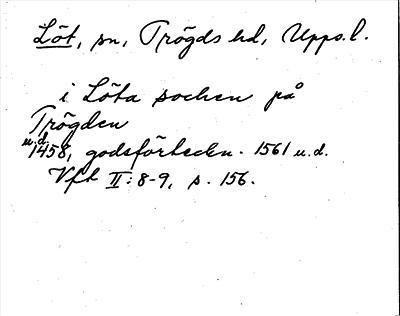 Löt, sn, Trögds hd, Upps. l.
i Löta sochen på
Trögden
u.d.
1458, godsförteckn. 1561 u.d.
Vft II: 8-9, s. 156.